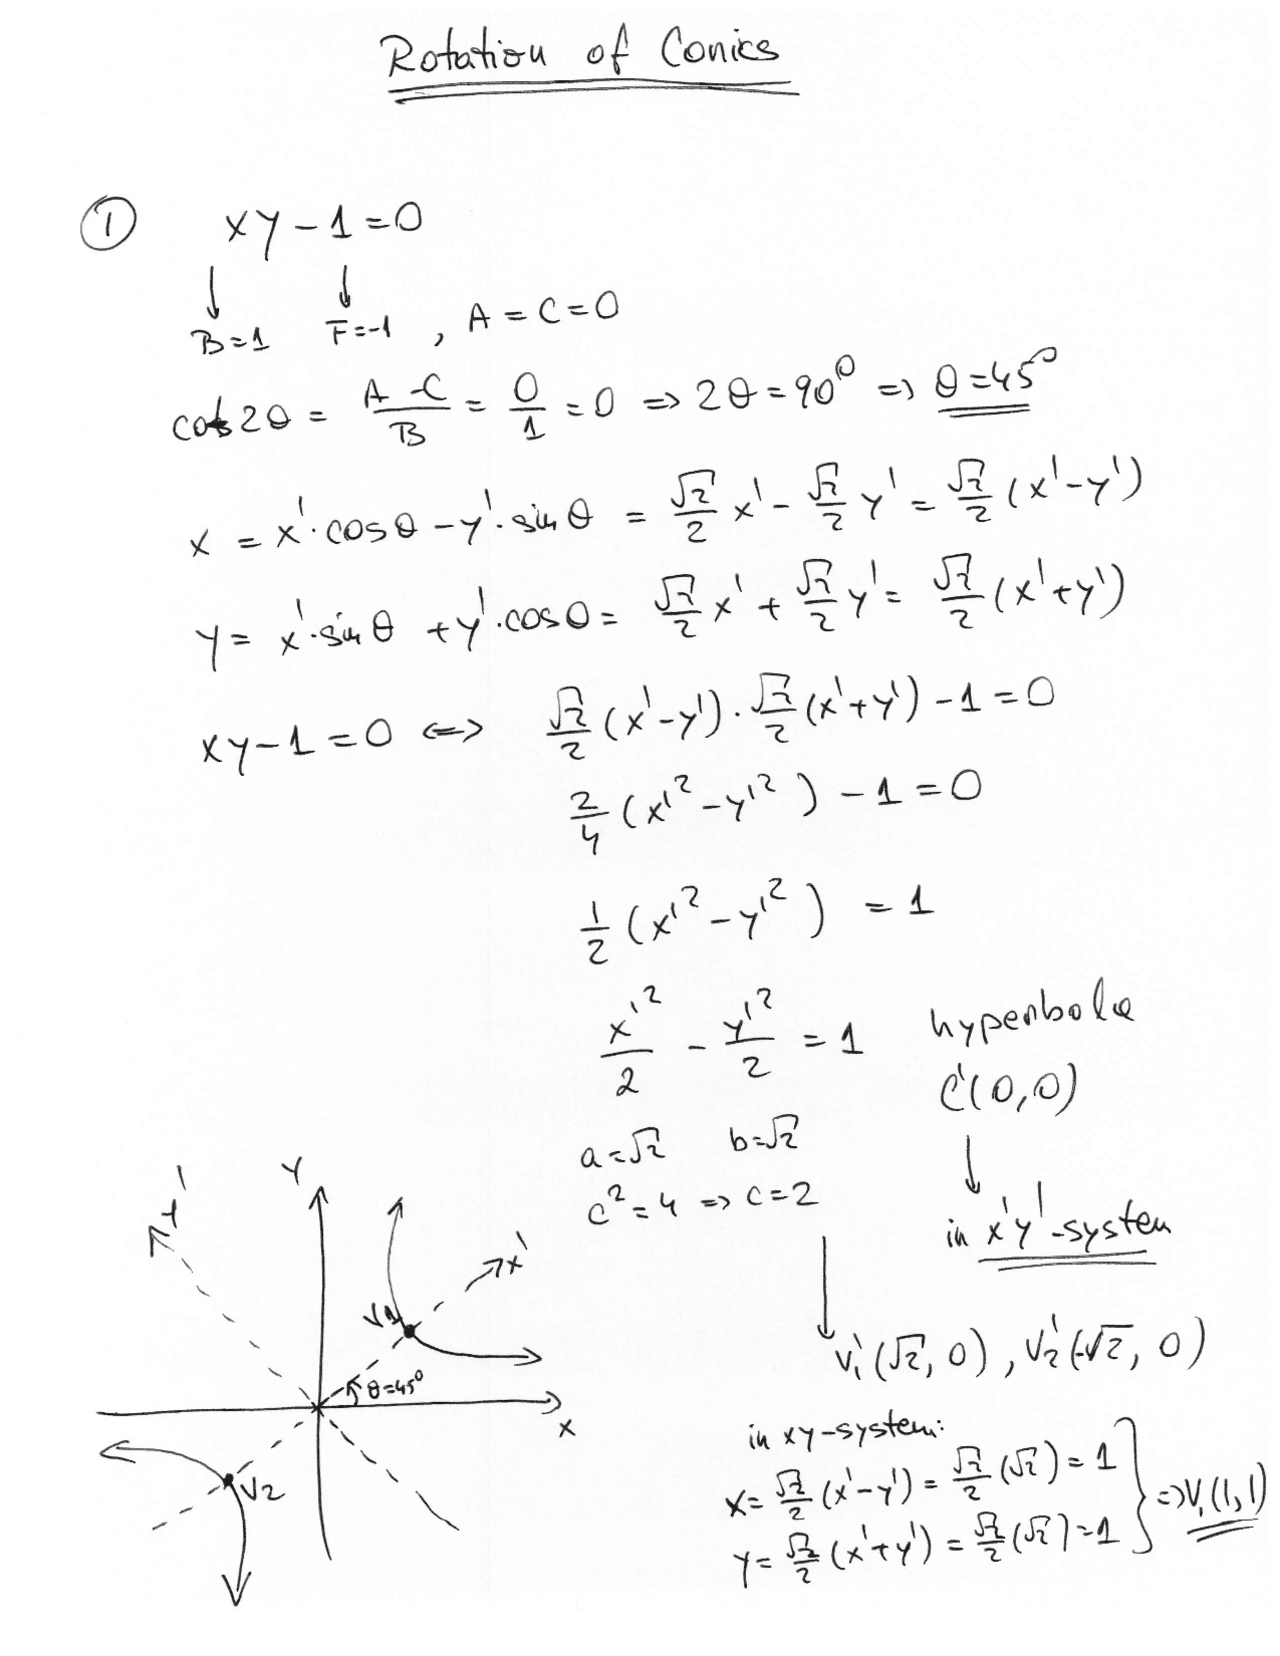 Rotation of Conics
① xy - 1 = 0
↓ ↓
B=1 F=-1 , A = C = 0
cot 2θ = (A - C)/B = 0/1 = 0 => 2θ = 90° => θ = 45°
x = x'·cosθ - y'·sinθ = √2/2 x' - √2/2 y' = √2/2 (x' - y')
y = x'·sinθ + y'·cosθ = √2/2 x' + √2/2 y' = √2/2 (x' + y')
xy - 1 = 0 <=> √2/2 (x' - y') · √2/2 (x' + y') - 1 = 0
2/4 (x'² - y'²) - 1 = 0
1/2 (x'² - y'²) = 1
x'²/2 - y'²/2 = 1 hyperbola
C'(0,0)
↓
a = √2 b = √2
c² = 4 => c = 2
in x'y'-system
↓
V₁'(√2, 0), V₂'(-√2, 0)
in xy-system:
x = √2/2 (x' - y') = √2/2 (√2) = 1
y = √2/2 (x' + y') = √2/2 (√2) = 1
} => V₁(1,1)
y'
y
x'
V1
θ=45°
x
V2